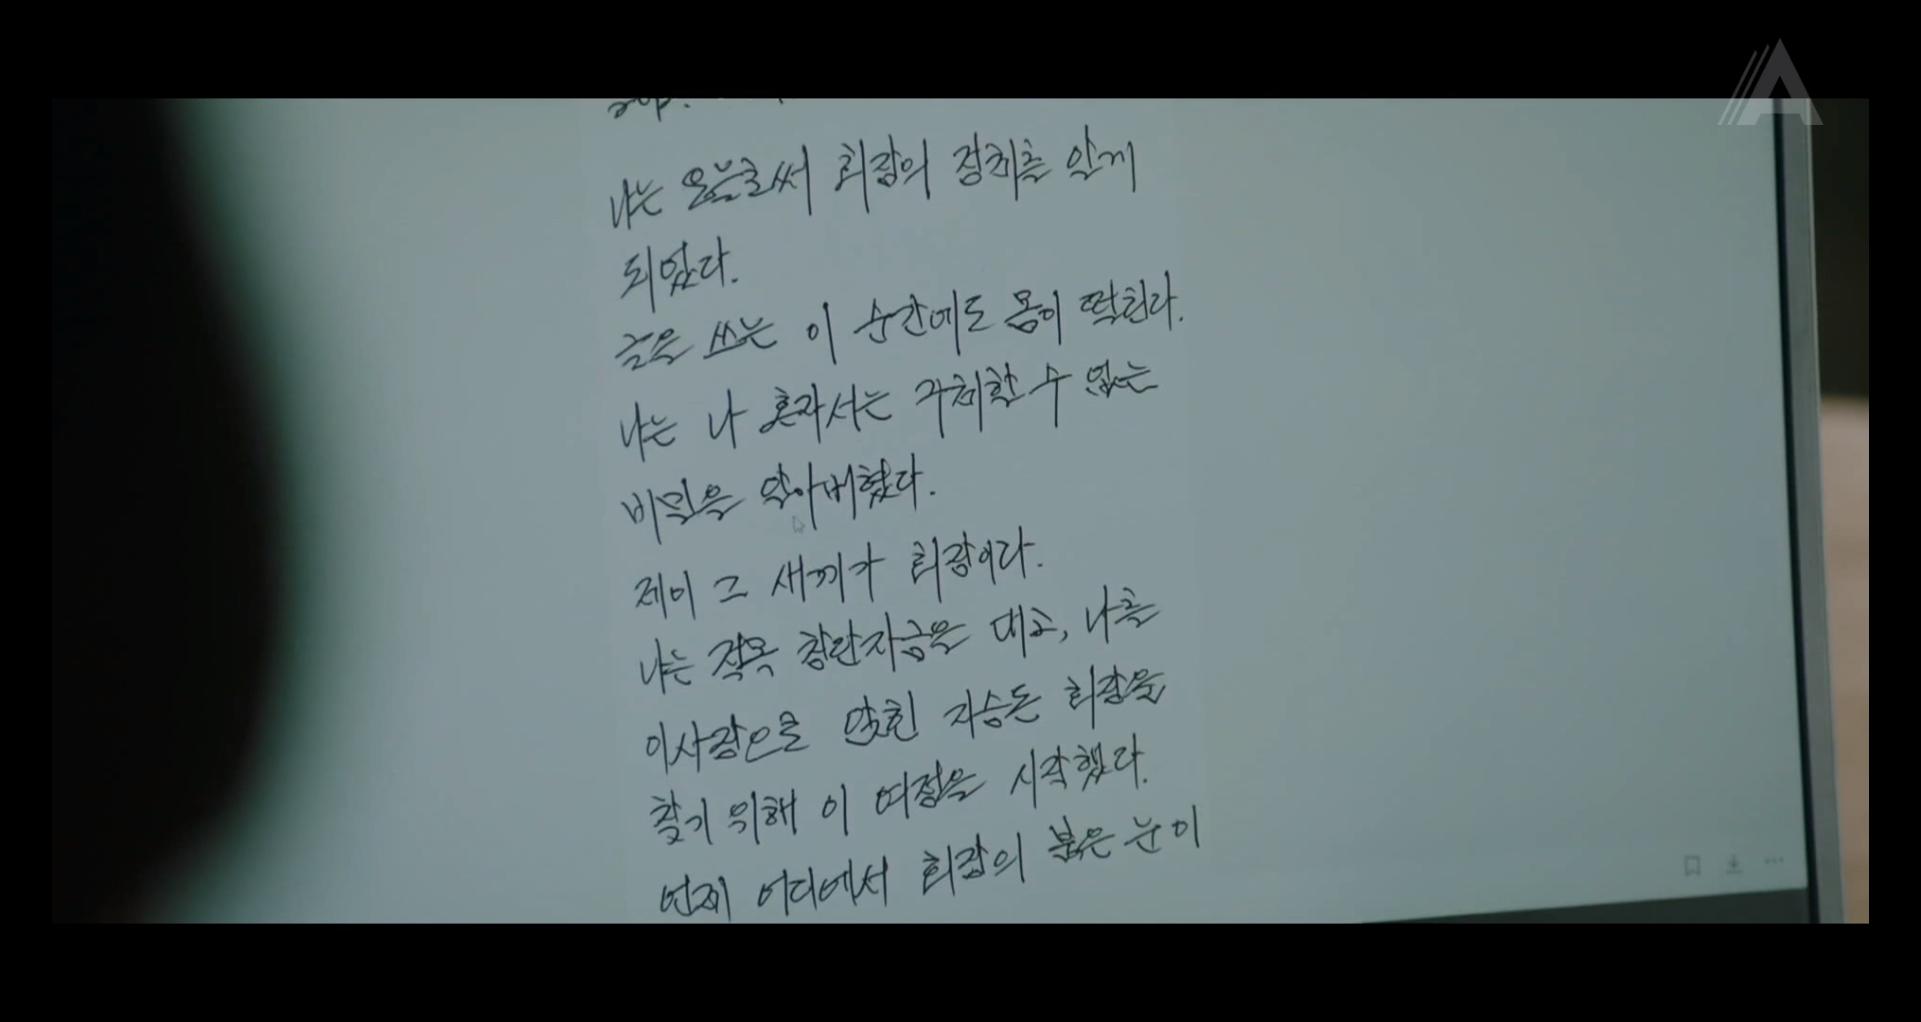 나는 오늘로써 회장의 정체를 알게
되었다.
글을 쓰는 이 순간에도 몸이 떨린다.
나는 나 혼자서는 주체할 수 없는
비밀을 알아버렸다.
제이 그 새끼가 회장이다.
나는 작목 창단자금을 대고, 나를
이사장으로 앉힌 지승돈 회장을
찾기 위해 이 여정을 시작했다.
언제 어디에서 회장의 붉은 눈이